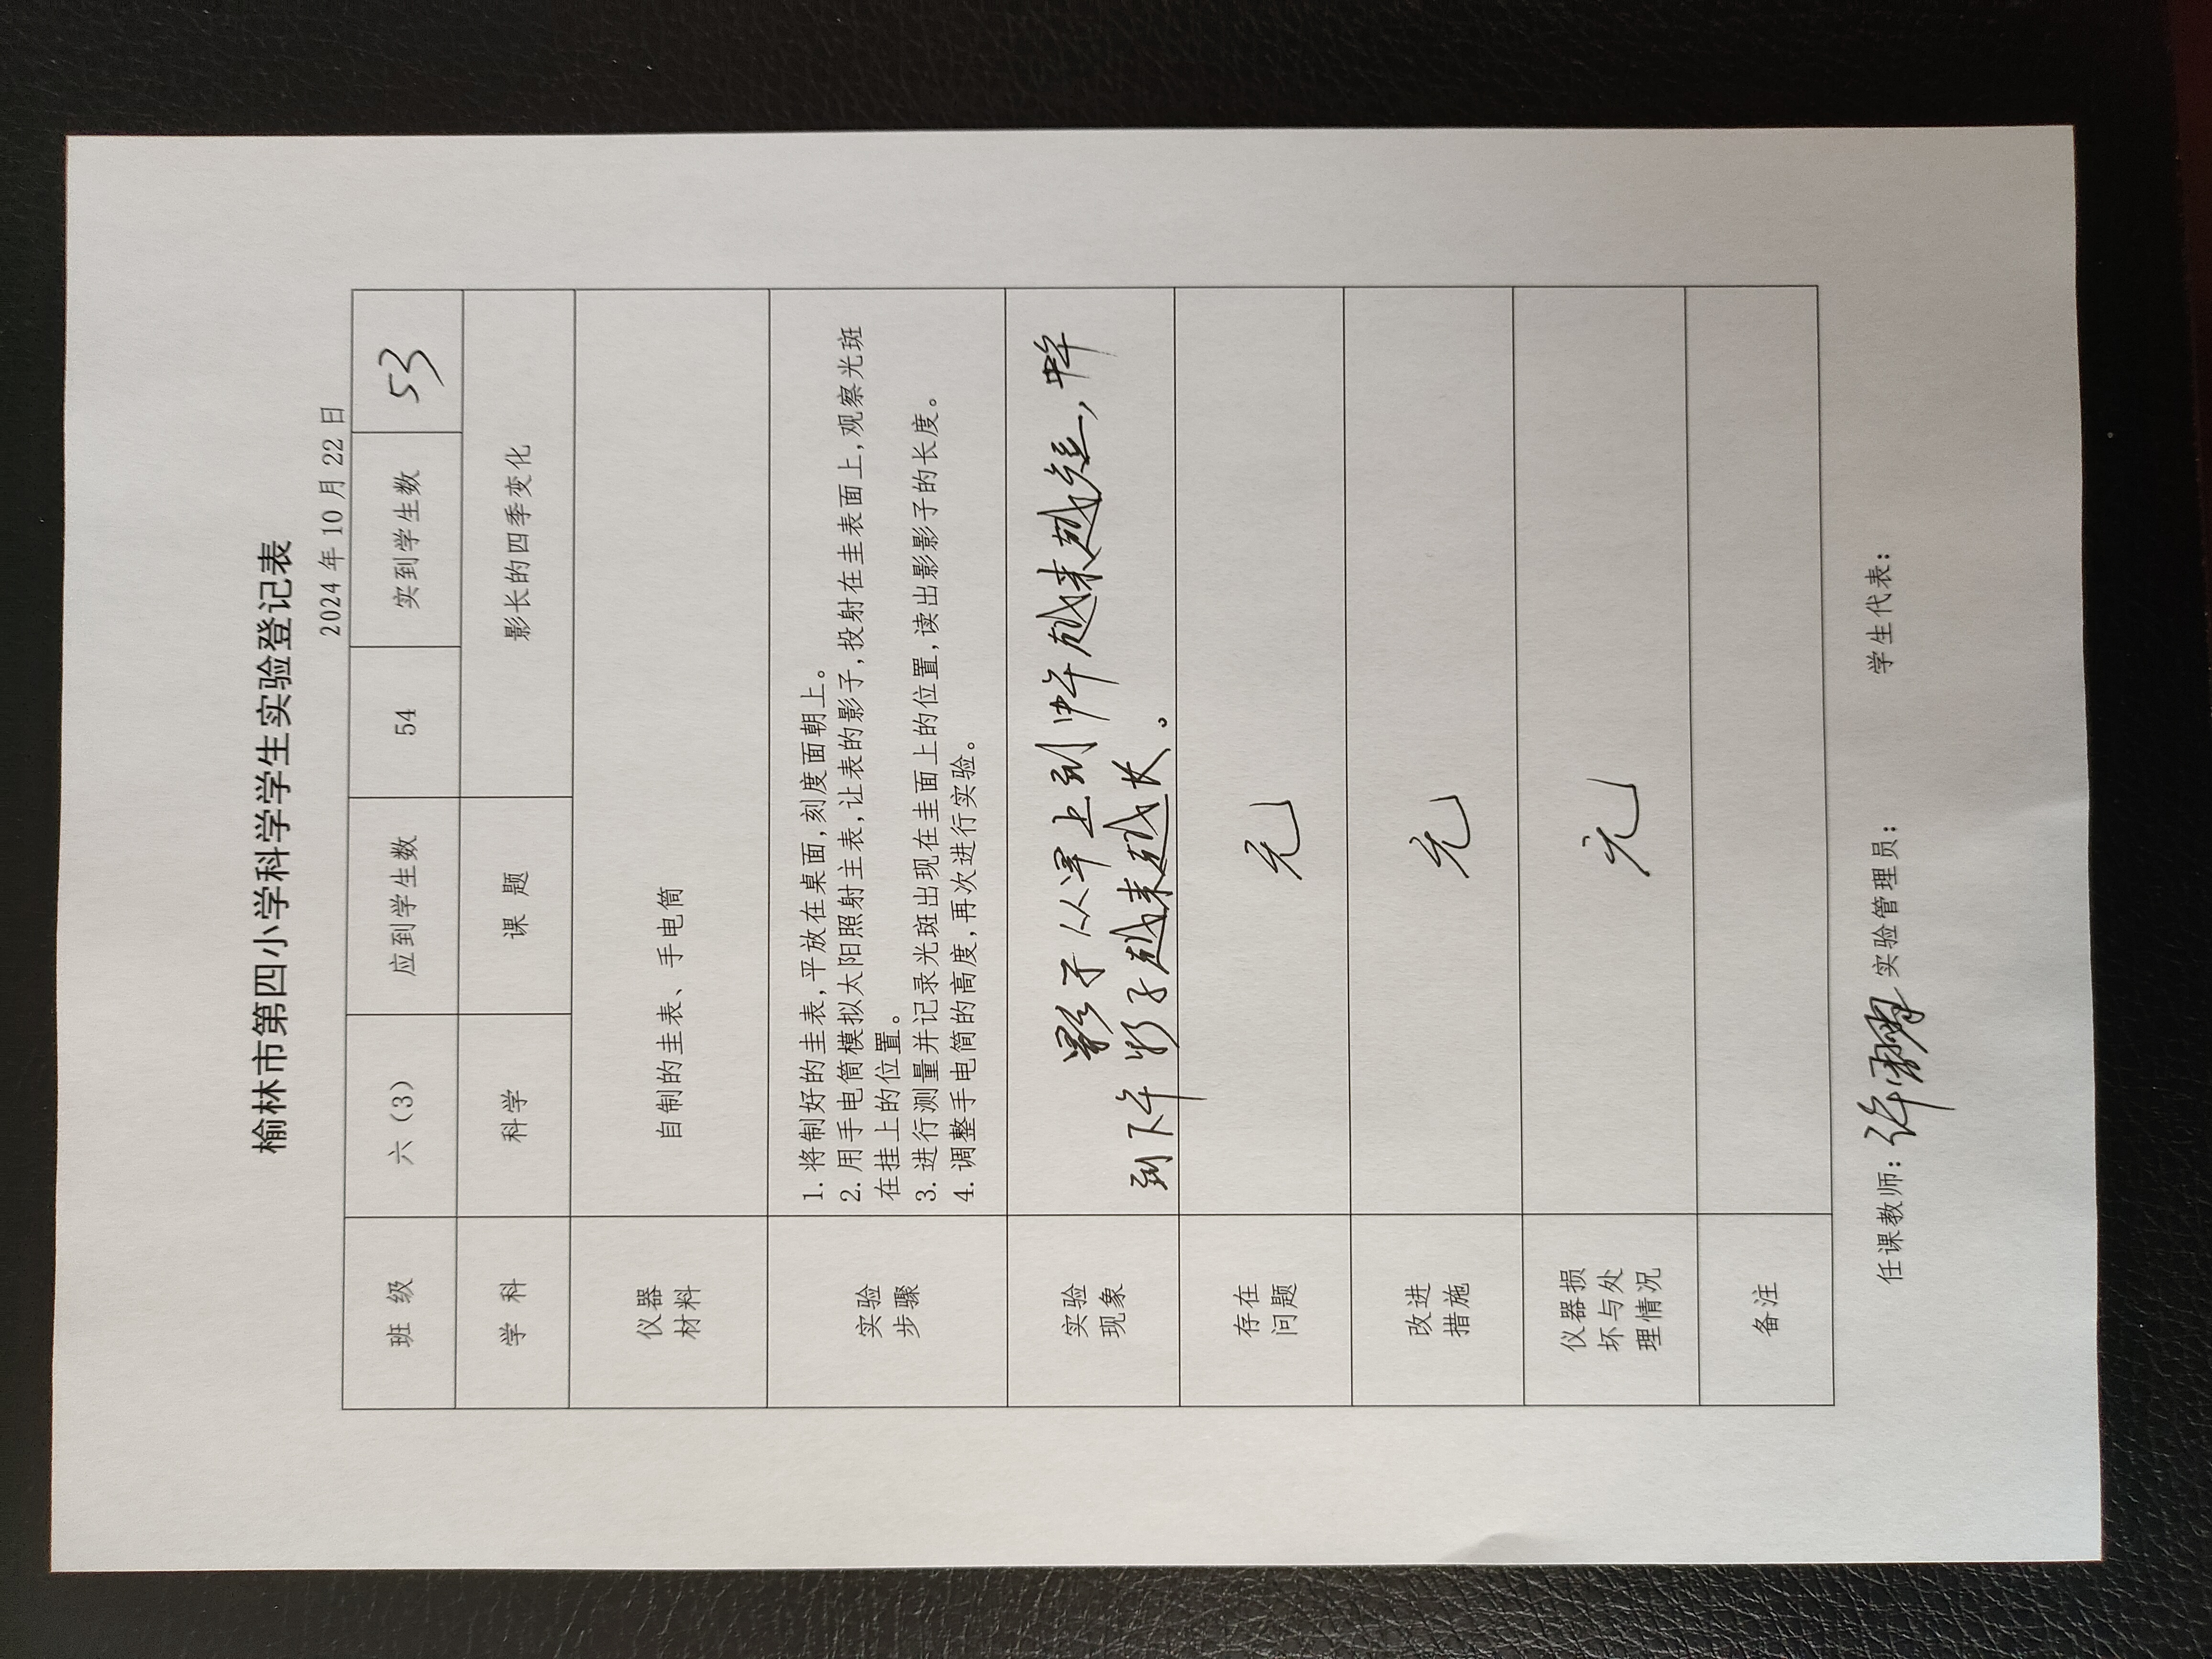 榆林市第四小学科学学生实验登记表
2024 年 10 月 22 日
班 级 六（3） 应到学生数 54 实到学生数 53
学 科 科学 课 题 影长的四季变化
仪器
材料
自制的圭表、手电筒
实验
步骤
1. 将制好的圭表，平放在桌面，刻度面朝上。
2. 用手电筒模拟太阳照射主表，让表的影子，投射在圭表面上，观察光斑
在挂上的位置。
3. 进行测量并记录光斑出现在圭面上的位置，读出影影子的长度。
4. 调整手电筒的高度，再次进行实验。
实验
现象
影子从早上到中午越来越短，中午
到下午影子越来越长。
存在
问题
无
改进
措施
无
仪器损
坏与处
理情况
无
备注
任课教师：许 实验管理员： 学生代表：